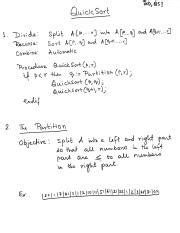 QuickSort
1. Divide: Split A[p...r] into A[p...q] and A[q+1...r]
Recurse: Sort A[p...q] and A[q+1...r]
Combine: Automatic
Procedure QuickSort(p,r)
if p<r then q := Partition(p,r);
QuickSort(p,q);
QuickSort(q+1,r);
endif
2. The Partition
Objective: Split A into a left and right part
so that all numbers in the left
part are ≤ to all numbers
in the right part.
Ex: